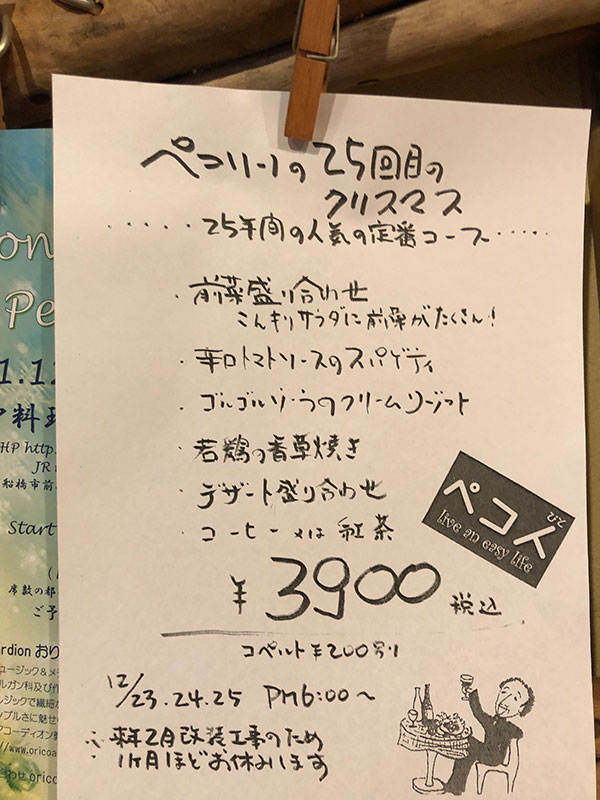 ペコリーノの25回目の
クリスマス
・・・・・25年間の人気の定番コース・・・・
・前菜盛り合わせ
こんもりサラダに前菜がたくさん!
・辛口トマトソースのスパゲティ
・ゴルゴルゾーラのクリームリゾット
・若鶏の香草焼き
・デザート盛り合わせ
・コーヒー又は紅茶
¥3900 税込
コペルト¥200別
12/23.24.25 PM6:00〜
※来年2月改装工事のため
1ヶ月ほどお休みします
ペコ人
びと
live an easy life
on
Pe
料理
HP http.
JR
船橋市前
Start
席数の都
ご予
rdion おり
ュージック&メ
ルガン科及び作
ルジックで繊細
ンプルさに魅せ
コーディオン
://www.oricoa
oric